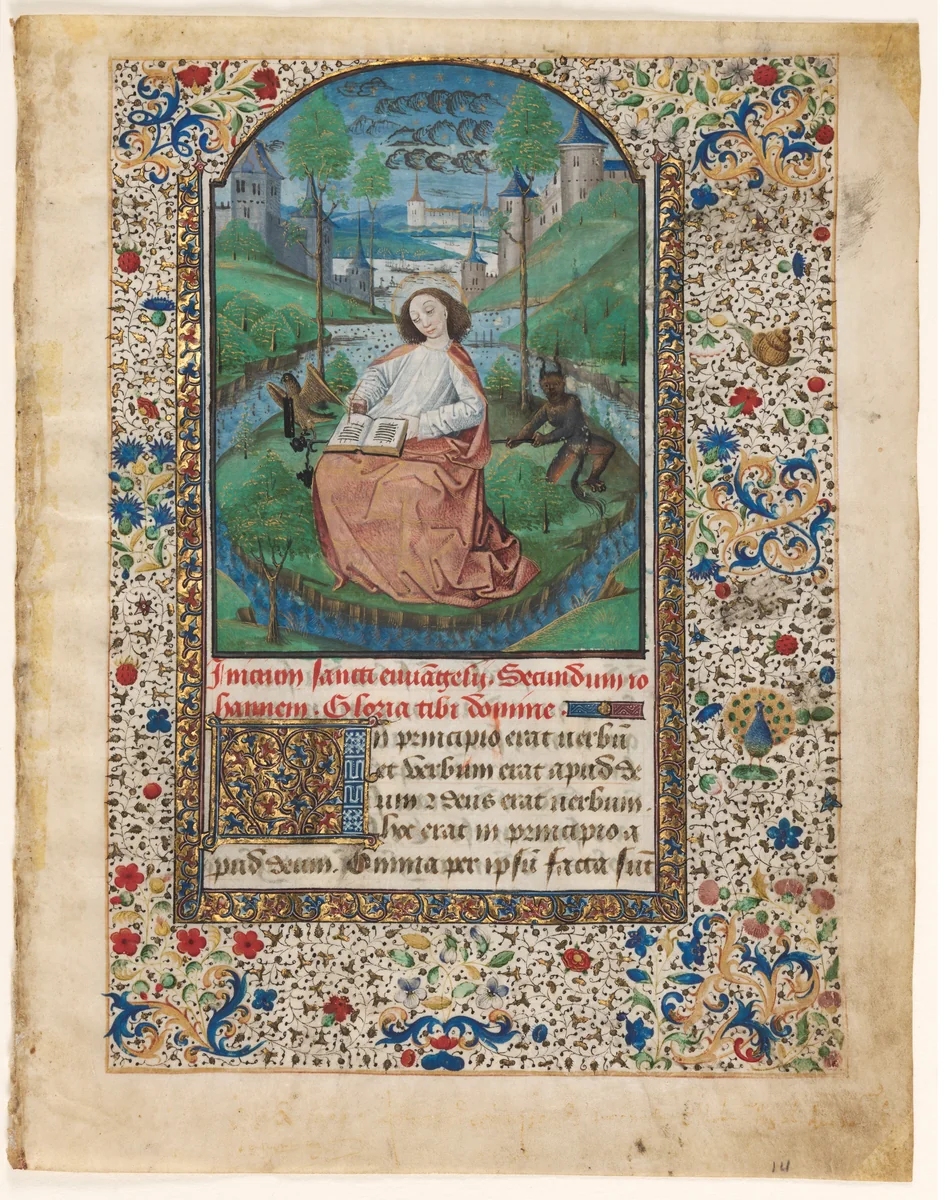 Inicium sancti euuāgelij. Secundum io
hannem. Gloria tibi dōmine.
In principio erat uerbū
et Verbum erat apud de
um ⁊ deus erat uerbum.
hoc erat in principio a
pud deum. Omnia per ipsū facta sūt
14